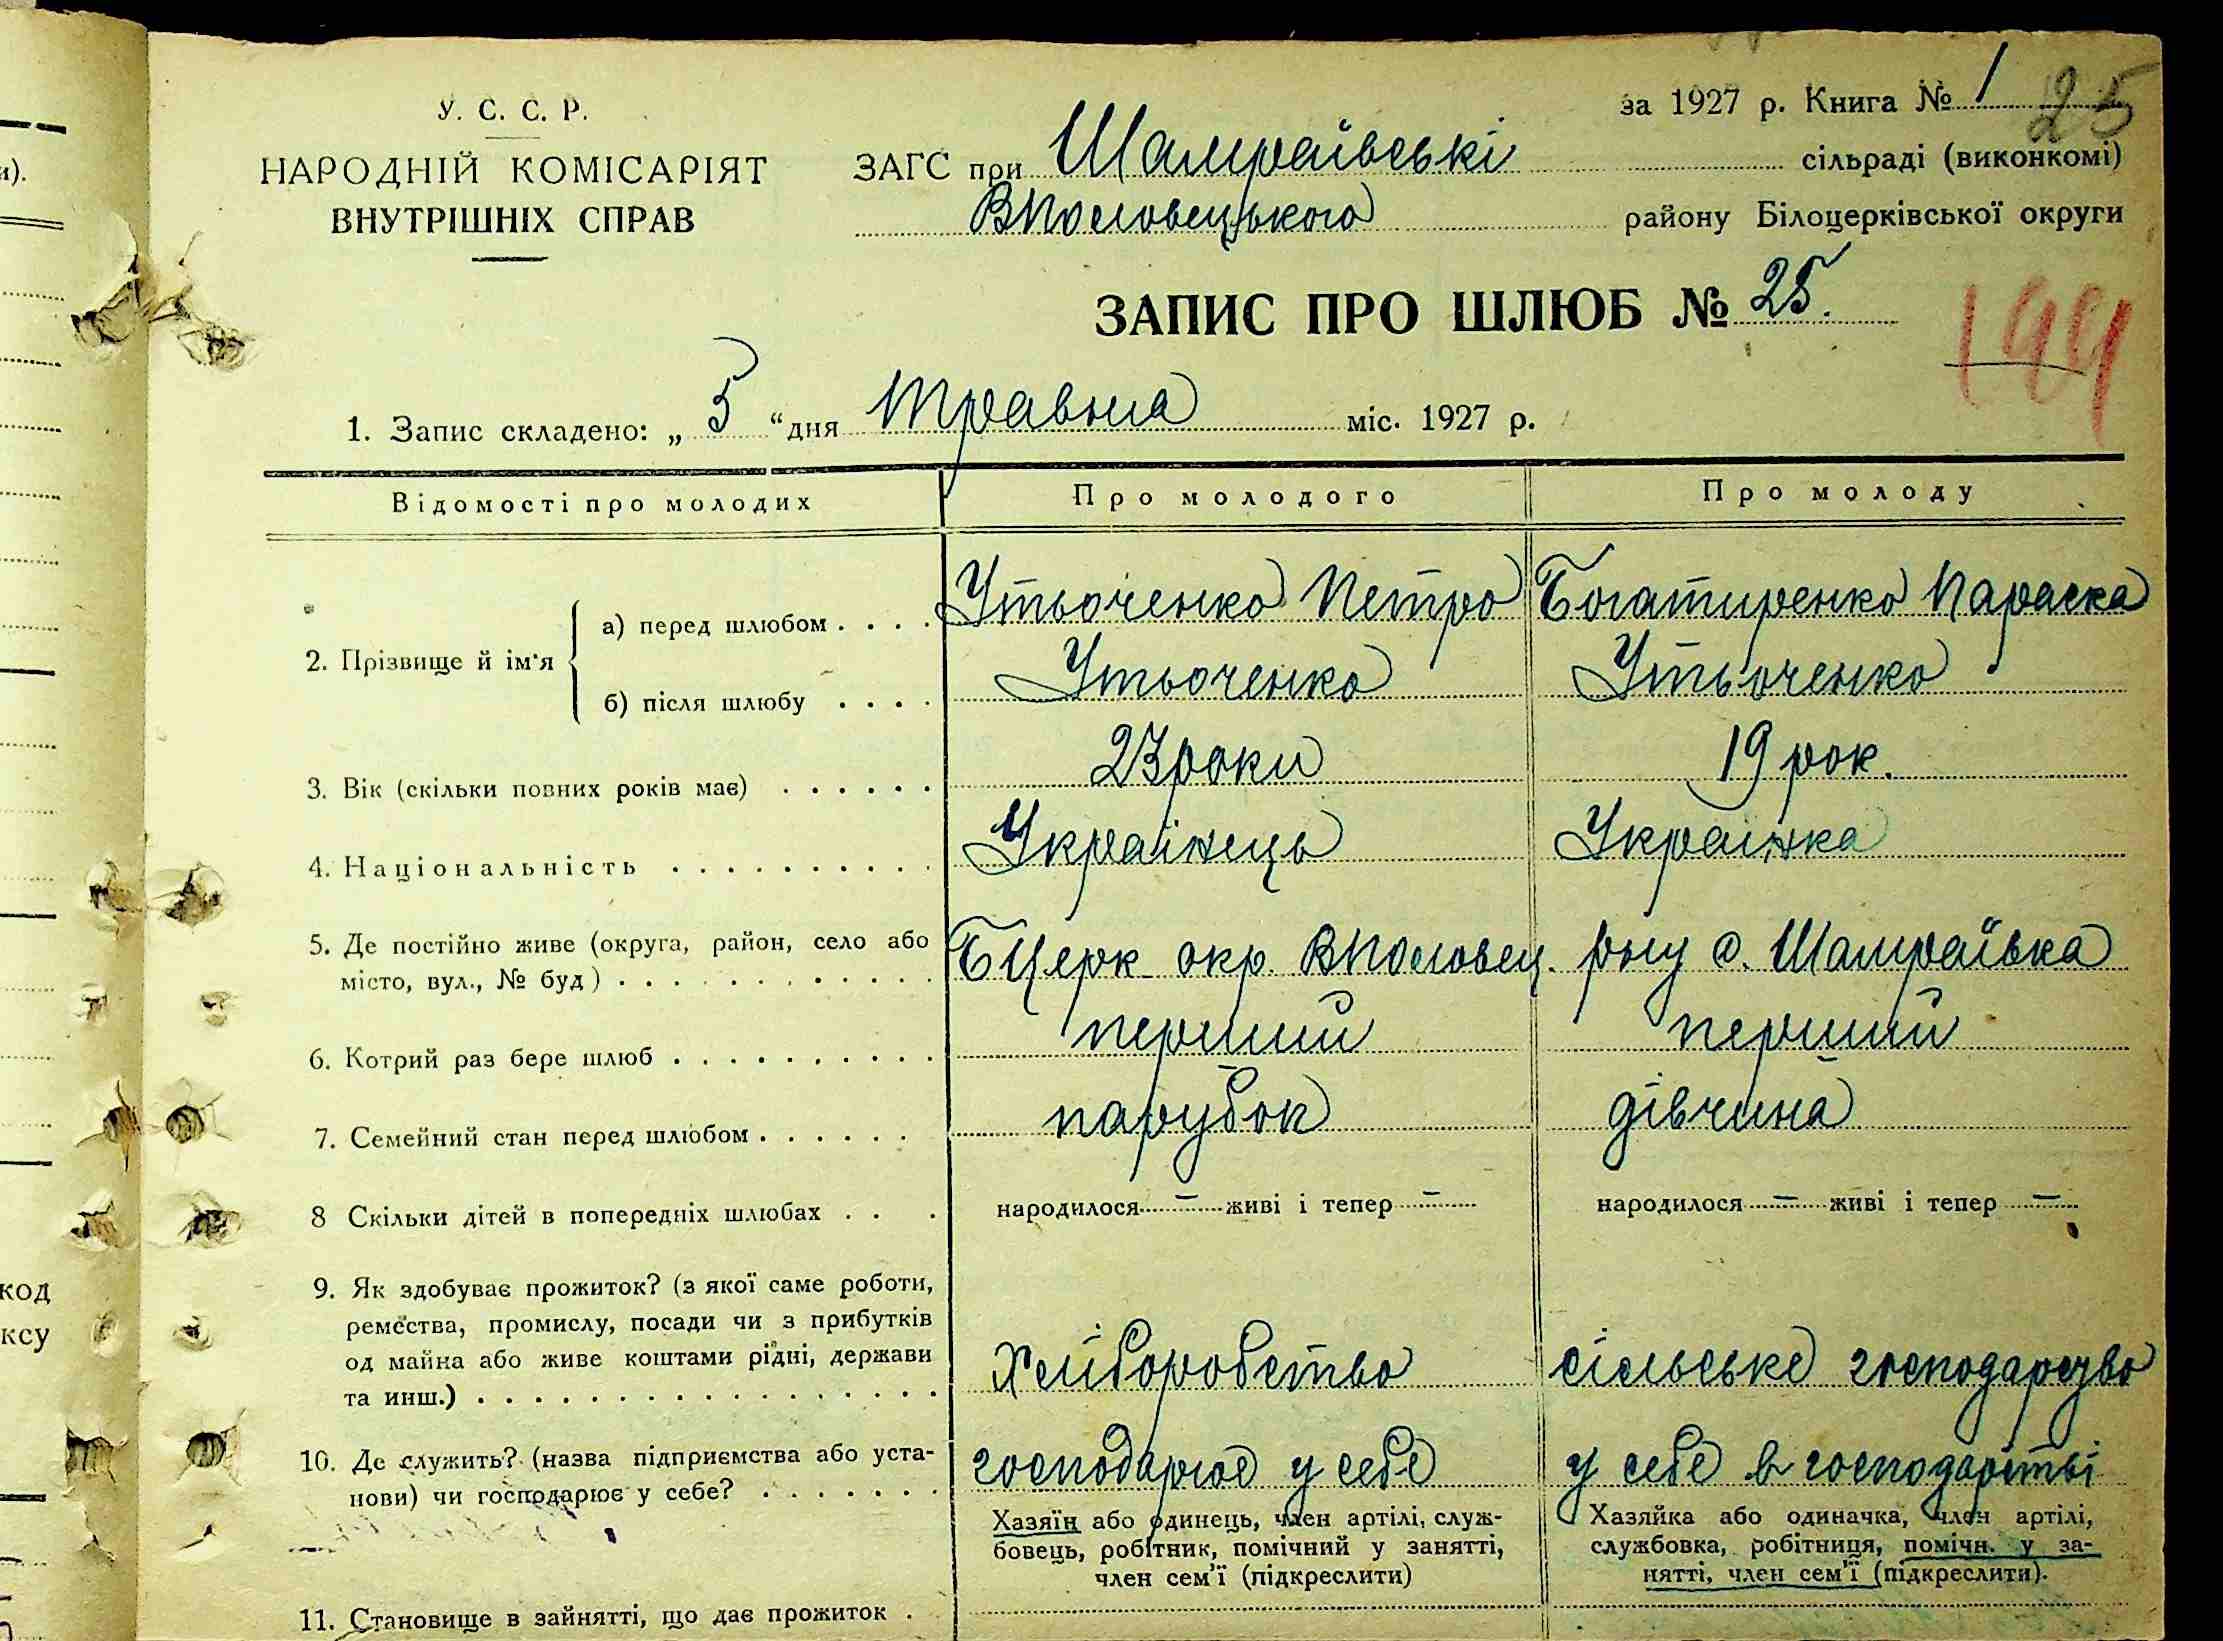 и).
код
ксу
за 1927 р. Книга № 1
25
У. С. С. Р.
НАРОДНІЙ КОМІСАРІЯТ
ВНУТРІШНІХ СПРАВ
ЗАГС при Шамраївські сільраді (виконкомі)
ВПоловецького району Білоцерківської округи
ЗАПИС ПРО ШЛЮБ № 25.
199
1. Запис складено: „ 5 “ дня Травня міс. 1927 р.
Відомості про молодих Про молодого Про молоду
2. Прізвище й ім'я
а) перед шлюбом . . . . Утьоченко Петро Богатиренко Параска
б) після шлюбу . . . . Утьоченко Утьоченко
3. Вік (скільки повних років має) . . . . . . 23 роки 19 рок.
4. Національність . . . . . . . . . . Українець Українка
5. Де постійно живе (округа, район, село або
місто, вул., № буд) . . . . . . . . . . . . БЦерк окр. ВПоловец. р-ну с. Шамраївка
6. Котрий раз бере шлюб . . . . . . . . . . перший перший
7. Семейний стан перед шлюбом . . . . . . парубок дівчина
8 Скільки дітей в попередніх шлюбах . . . народилося — живі і тепер — народилося — живі і тепер —
9. Як здобуває прожиток? (з якої саме роботи,
ремества, промислу, посади чи з прибутків
од майна або живе коштами рідні, держави
та инш.) . . . . . . . . . . . . . . . . . Хліборобство сільське господарство
10. Де служить? (назва підприємства або уста-
нови) чи господарює у себе? . . . . . . . господарює у себе у себе в господарстві
Хазяїн або одинець, член артілі, служ-
бовець, робітник, помічний у занятті,
член сем'ї (підкреслити)
Хазяйка або одиначка, член артілі,
службовка, робітниця, помічн. у за-
нятті, член сем'ї (підкреслити).
11. Становище в зайнятті, що дає прожиток .